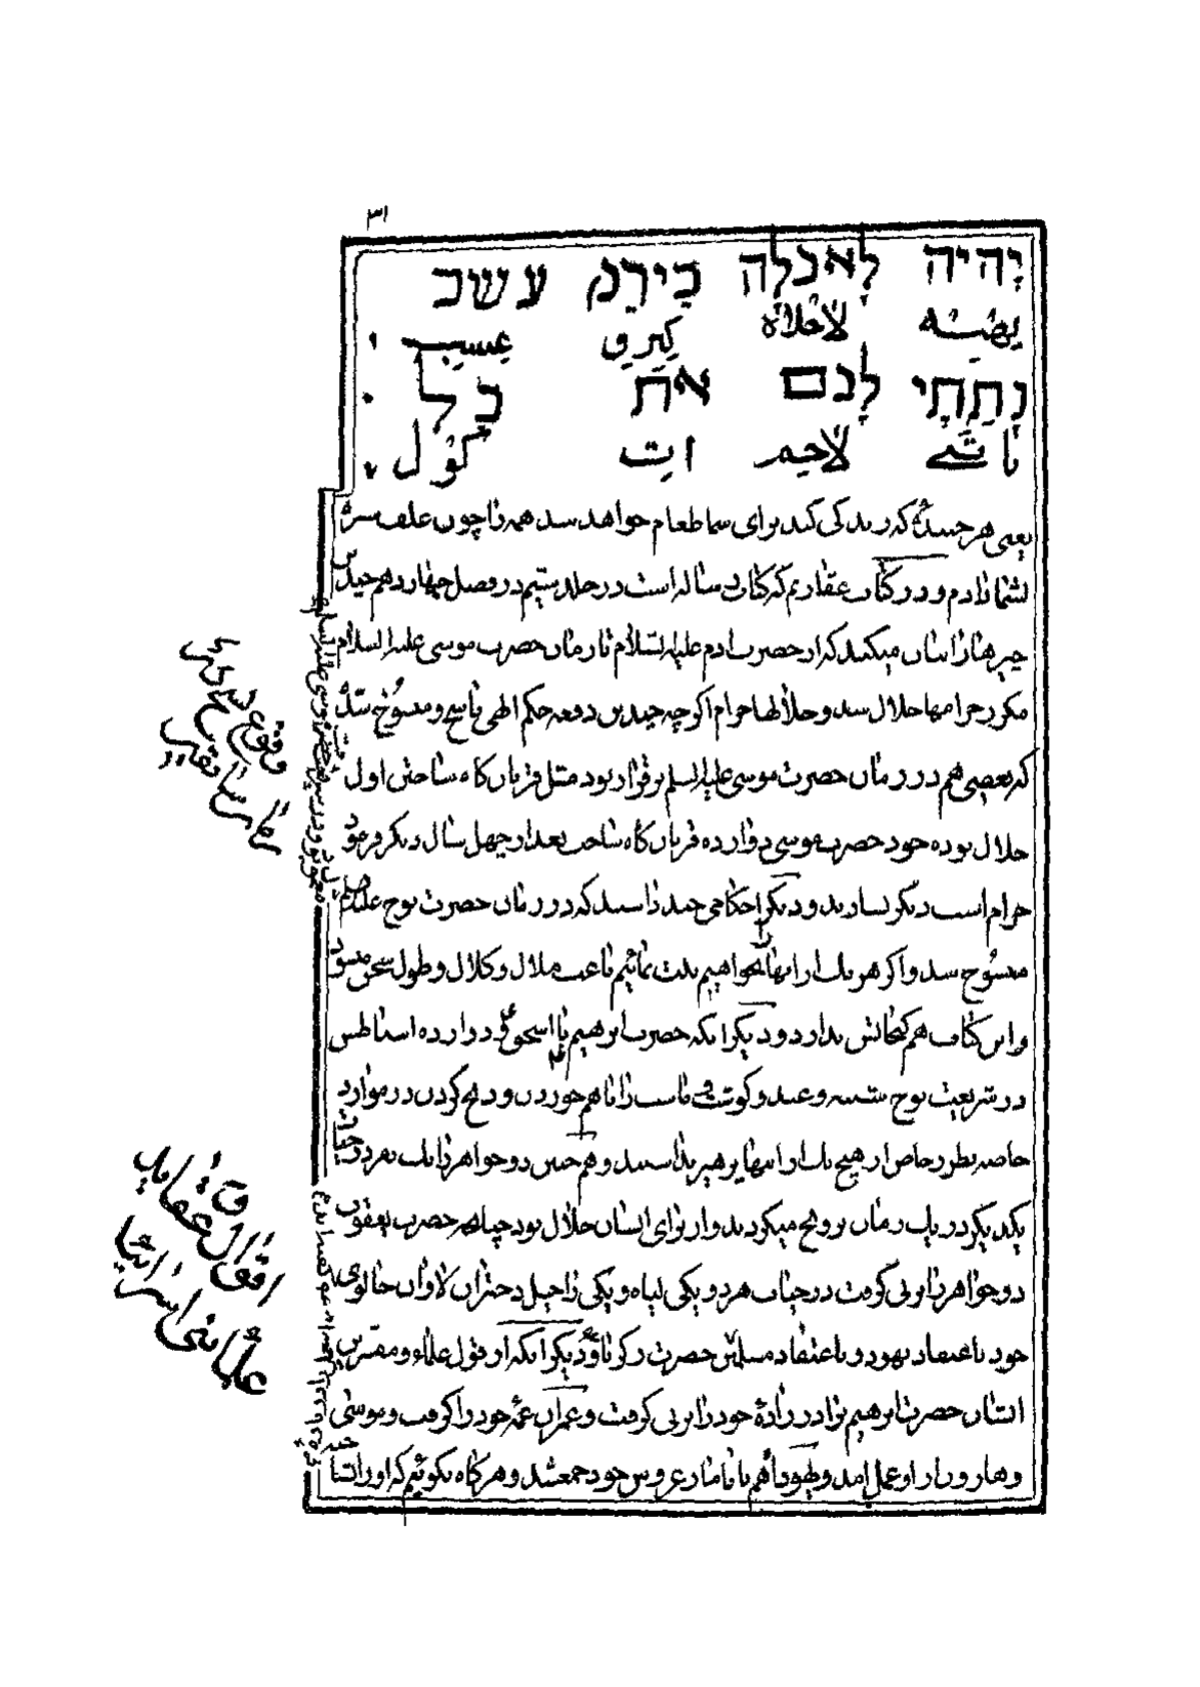 ۳۱
יִהְיֶה לְאָכְלָה כְּיֶרֶק עֵשֶׂב
یهیه لاخلاه کیرق عسب
נָתַתִּי לָכֶם אֶת כֹּל
ناتتی لاخم ات کول
یعنی هر جنبنده که زندکی کند برای شما طعام خواهد شد همه را چون علف سبزه
بشما دادم و در کتاب عقاریم که کتابی مسئله است در جلد سیم در فصل چهاردهم چندین
چیزها را بیان میکند که از حضرت ادم علیه السلام تا زمان حضرت موسی علیه السلام
مکرر حرامها حلال شد و حلالها حرام اکر چه چندین دفعه حکم الهی ناسخ و منسوخ شده
که بعضی هم در زمان حضرت موسی علیه السلم برقرار بود مثل قربان کاه ساختن اول
حلال بوده خود حضرت موسی دوازده قربان کاه ساخت بعد از چهل سال دیکر فرمود
حرام است دیکر نسازید و دیکر احکامی چند را سید که در زمان حضرت نوح علیه السلم
منسوخ شد و اکر هر یک از اینها را بخواهیم ثبت نمائیم باعث ملال و کلال و طول سخن میشود
و این کتاب هم کنجایش ندارد و دیکر انکه حضرت ابرهیم با اسحق و دوازده اسباطش
در شریعت نوح بوده و کوشت و ماست را با هم خوردن و ذبح کردن در موارد
خاصه بطور خاص از هیچ یک از اینها پرهیز نداشتند و هم چنین دو خواهر را یک نفر در حیات
یکدیکر در یک زمان تزویج میکردند و از برای ایشان حلال بود چنانچه حضرت یعقوب
دو خواهر را بزنی کرفت در حیات هر دو یکی لیاه و یکی راحیل دختران لاوان خالوی
خود باعتقاد یهود و باعتقاد مسلمین حضرت زکریا و دیکر انکه از قول علماء و مفسرین
ایشان حضرت ابرهیم برادر زادهٔ خود را بزنی کرفت و عمران عمهٔ خود را کرفت و موسی
و هارون از او بعمل امد و یهودا هم با تامار عروس خود جمع شد و هر کاه بکوئیم که اوراشیا
وقوع نسخ
اقوال عقاید
علمای بنی اسرائیل